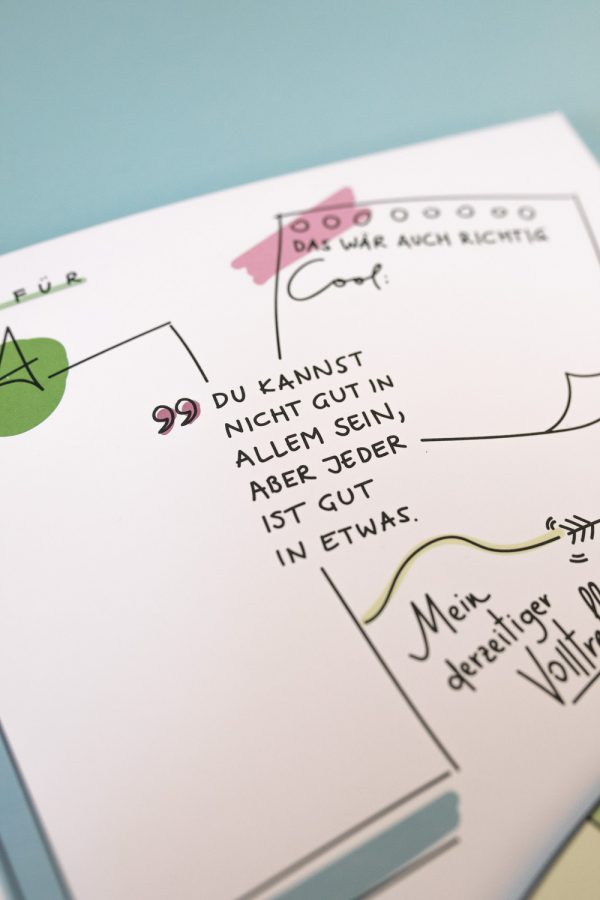 FÜR
DAS WÄR AUCH RICHTIG
Cool:
DU KANNST
NICHT GUT IN
ALLEM SEIN,
ABER JEDER
IST GUT
IN ETWAS.
Mein
derzeitiger